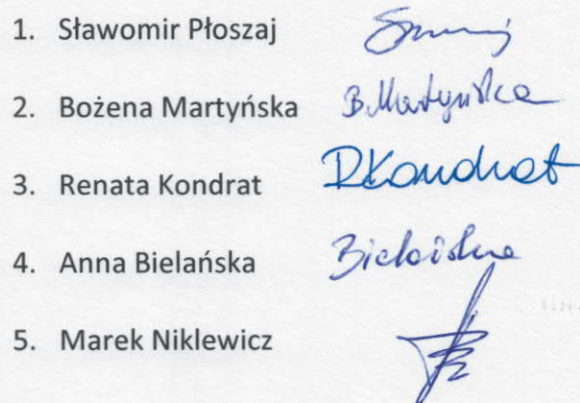 1. Sławomir Płoszaj
2. Bożena Martyńska B.Martyńska
3. Renata Kondrat RKondrat
4. Anna Bielańska Bielańska
5. Marek Niklewicz